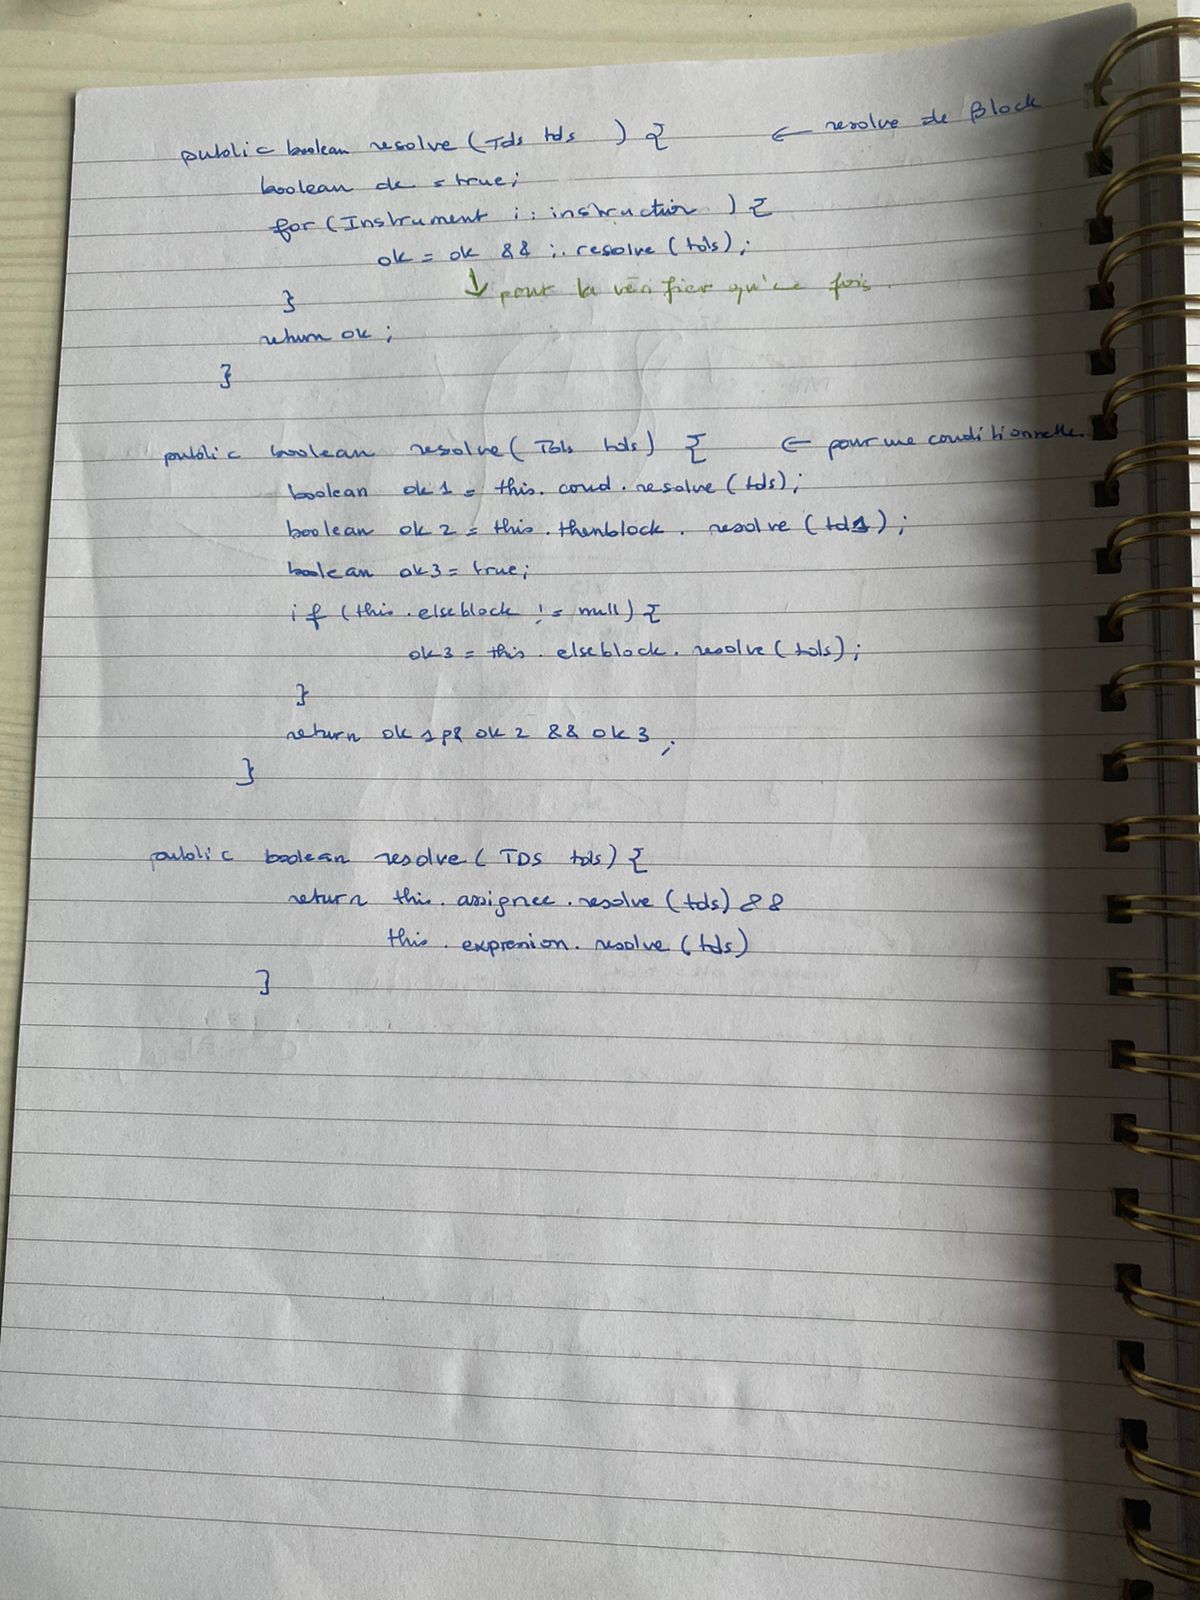 public boolean resolve (Tds tds ) { ← resolve de Block
boolean ok = true;
for (Instrument i : instruction ) {
ok = ok && i. resolve (tds);
↓ pour la vérifier qu'une fois.
}
return ok ;
}
public boolean resolve ( Tds tds) { ← pour une conditionnelle.
boolean ok 1 = this. cond . resolve (tds);
boolean ok 2 = this . thenblock . resolve (tds);
boolean ok3 = true;
if (this . elseblock != null) {
ok 3 = this . elseblock. resolve (tds);
}
return ok 1 && ok 2 && ok 3 ;
}
public boolean resolve ( TDS tds) {
return this. assignee . resolve (tds) &&
this . expression . resolve (tds)
}